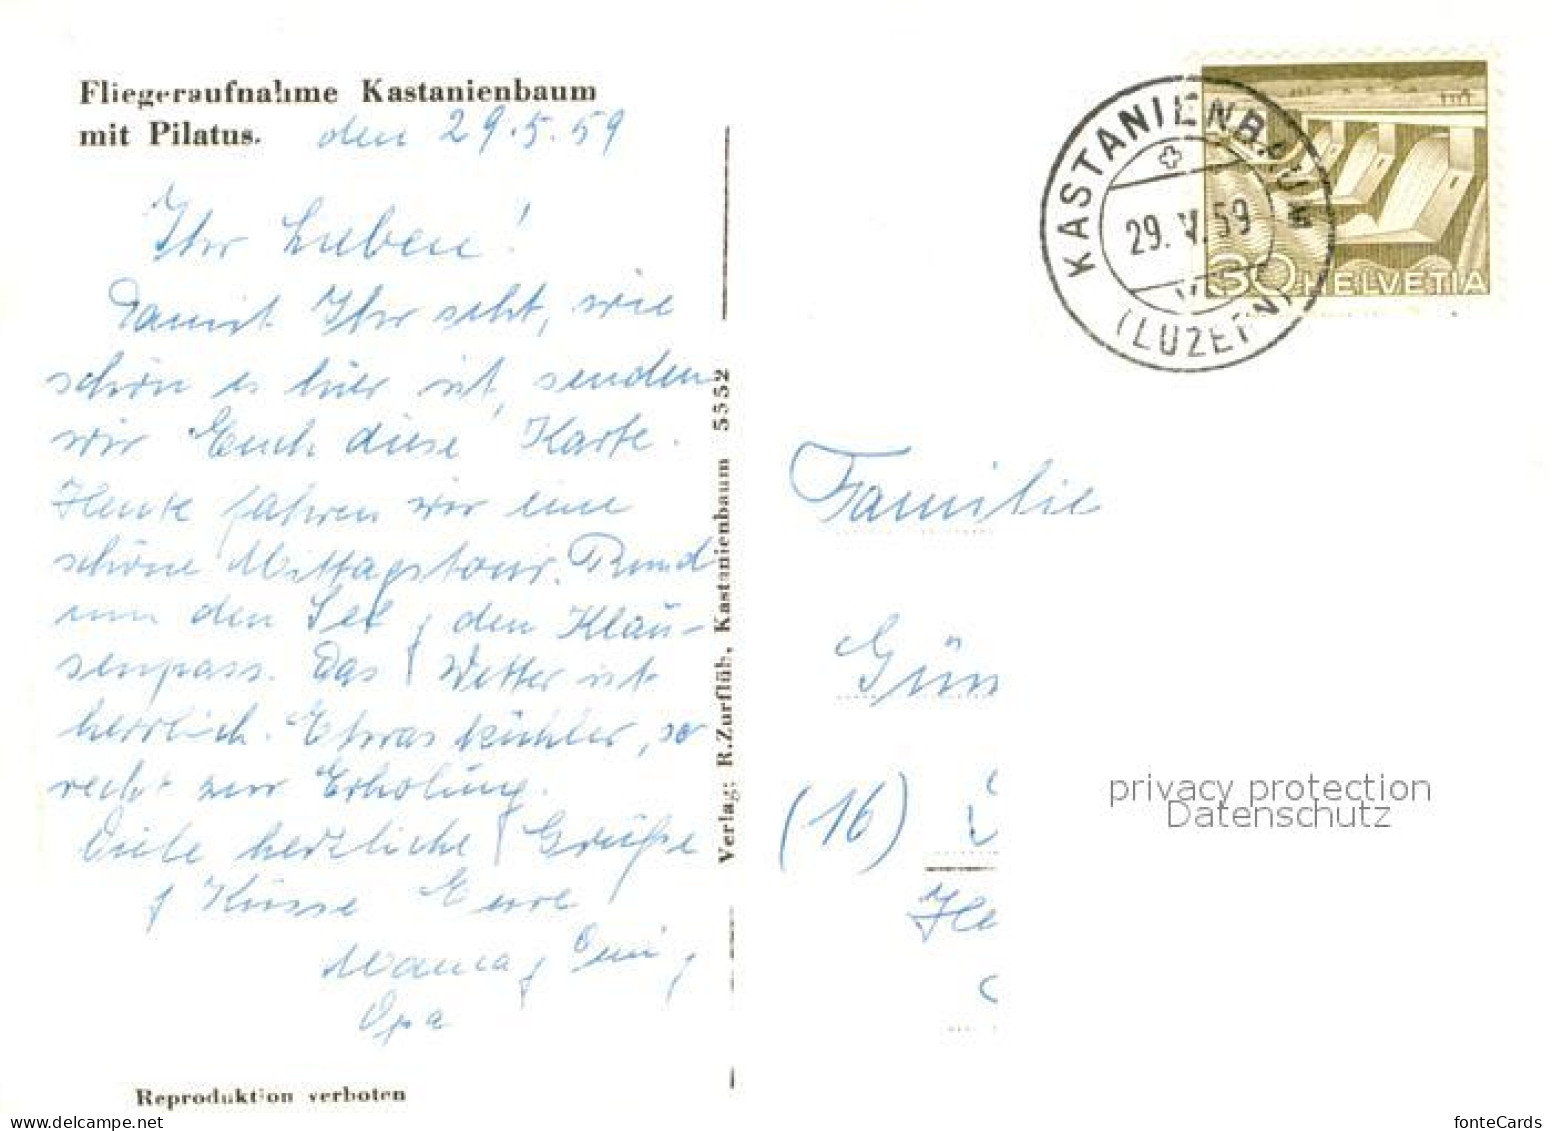 Fliegeraufnahme Kastanienbaum
mit Pilatus.
den 29.5.59
Ihr Lieben!
Damit Ihr seht, wie
schön es hier ist, senden
wir Euch diese Karte.
Heute fahren wir eine
schöne Mittagstour. Rund
um den See, den Klau-
senpass. Das Wetter ist
herrlich. Etwas kühler, so
recht zur Erholung.
Viele herzliche Grüße
Küsse Eure
Mama
Opa
Reproduktion verboten
Verlag: R. Zurflüh, Kastanienbaum 5552
KASTANIENBAUM
29. V. 59
(LUZERN)
30 HELVETIA
Familie
Gün
(16)
He
privacy protection
Datenschutz
www.delcampe.net
fonteCards